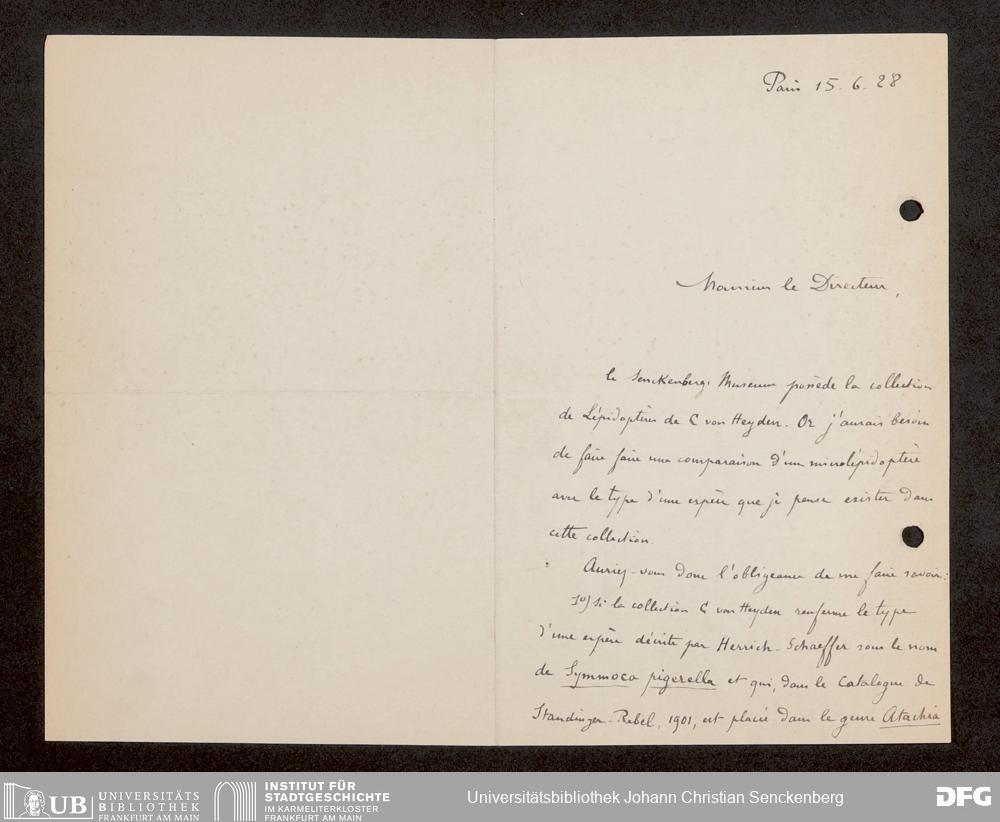 Paris 15.6.28
Monsieur le Directeur,
le Senckenbergs Museum possède la collection
de Lépidoptères de C von Heyden. Or j'aurais besoin
de faire faire une comparaison d'un microlépidoptère
avec le type d'une espèce que je pense exister dans
cette collection.
Auriez-vous donc l'obligeance de me faire savoir:
1º) Si la collection C von Heyden renferme le type
d'une espèce décrite par Herrich-Schaeffer sous le nom
de Symmoca pigerella et qui, dans le Catalogue de
Staudinger-Rebel, 1901, est placée dans le genre Atachia
UB UNIVERSITÄTS
BIBLIOTHEK
FRANKFURT AM MAIN
INSTITUT FÜR
STADTGESCHICHTE
IM KARMELITERKLOSTER
FRANKFURT AM MAIN
Universitätsbibliothek Johann Christian Senckenberg
DFG